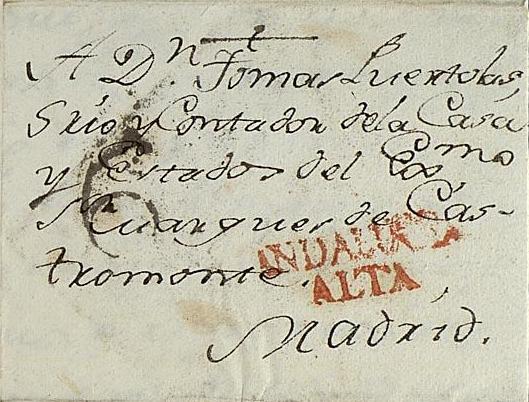 A Dn. Tomas Luertolas
Srio y Contador dela Casa
y Estados del Exmo
Sr Marques de Cas-
tromonte.
ANDALUCIA
ALTA
Madrid.